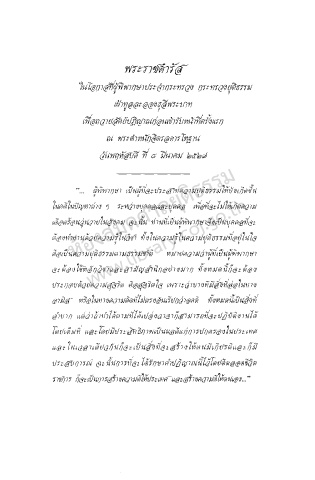 พระราชดำรัส
ในโอกาสที่ผู้พิพากษาประจำกระทรวง กระทรวงยุติธรรม
เฝ้าทูลละอองธุลีพระบาท
เพื่อถวายสัตย์ปฏิญาณก่อนเข้ารับหน้าที่ครั้งแรก
ณ พระตำหนักจิตรลดารโหฐาน
วันพฤหัสบดี ที่ ๘ มีนาคม ๒๕๒๗
"... ผู้พิพากษา เป็นผู้ที่จะประสาทความยุติธรรมให้บังเกิดขึ้น
ในคดีในปัญหาต่าง ๆ ระหว่างบุคคลและบุคคล เพื่อที่จะไม่ให้เกิดความ
เดือดร้อนวุ่นวายในสังคม ฉะนั้น ท่านที่เป็นผู้พิพากษาจึงเป็นบุคคลที่จะ
ต้องทำงานด้วยความรู้ในวิชา ทั้งในความรู้ในความยุติธรรมที่อยู่ในใจ
คือเป็นความยุติธรรมตามธรรมชาติ หมายความว่าผู้ที่เป็นผู้พิพากษา
จะต้องใช้หลักวิชาและสามัญสำนึกอย่างมาก ทั้งหมดนี้ก็จะต้อง
ประกอบด้วยความสุจริต คือสุจริตใจ เพราะว่าบางทีมีสิ่งที่ล่อในทาง
อามิส หรือในทางความคิดที่ไม่ตรงฉันเรียกว่าอคติ ทั้งหมดนี้เป็นสิ่งที่
ลำบาก แต่ว่าถ้าทำได้ตามที่ได้เปล่งวาจาก็สามารถที่จะปฏิบัติงานได้
โดยเต็มที่ และโดยมีประสิทธิภาพเป็นผลดีแก่การปกครองในประเทศ
และในเวลาเดียวกันก็จะเป็นสิ่งที่จะสร้างให้ตนมีเกียรติและก็มี
ประสบการณ์ ฉะนั้นการที่จะได้รักษาคำปฏิญาณนี้ไว้โดยติดตลอดชีวิต
ราชการ ก็จะเป็นการสร้างความดีให้ประเทศ และสร้างความดีให้ตนเอง..."